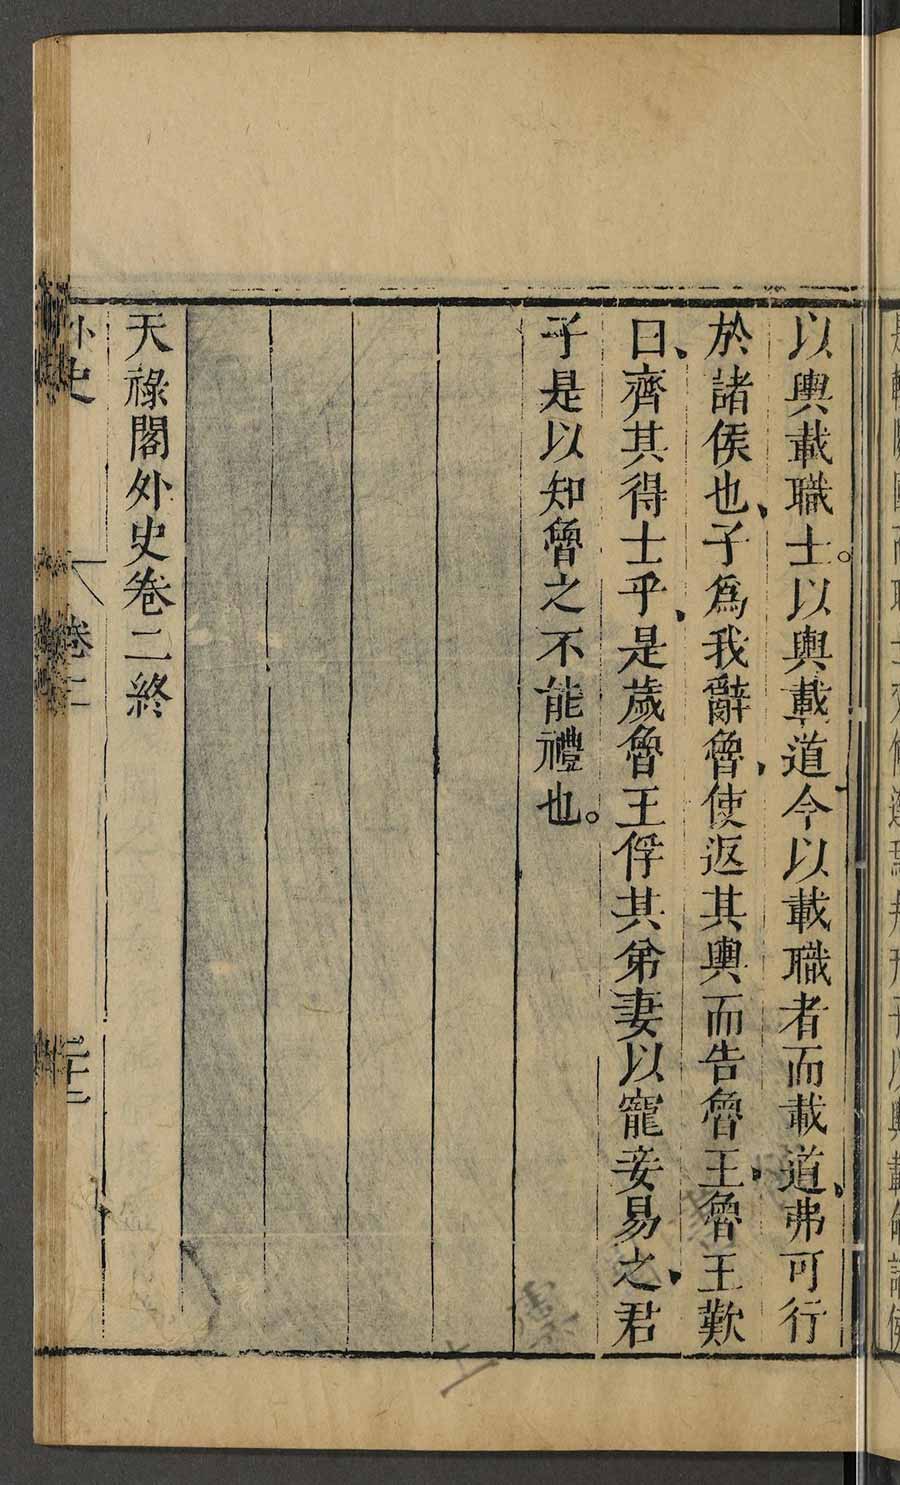 以輿載職士。以輿載道今以載職者而載道、弗可行
於諸侯也、子爲我辭魯、使返其輿而告魯王、魯王歎
曰、齊其得士乎、是歲魯王俘其弟妻以寵妾易之、君
子是以知魯之不能禮也。
天祿閣外史卷二終
外史
卷二